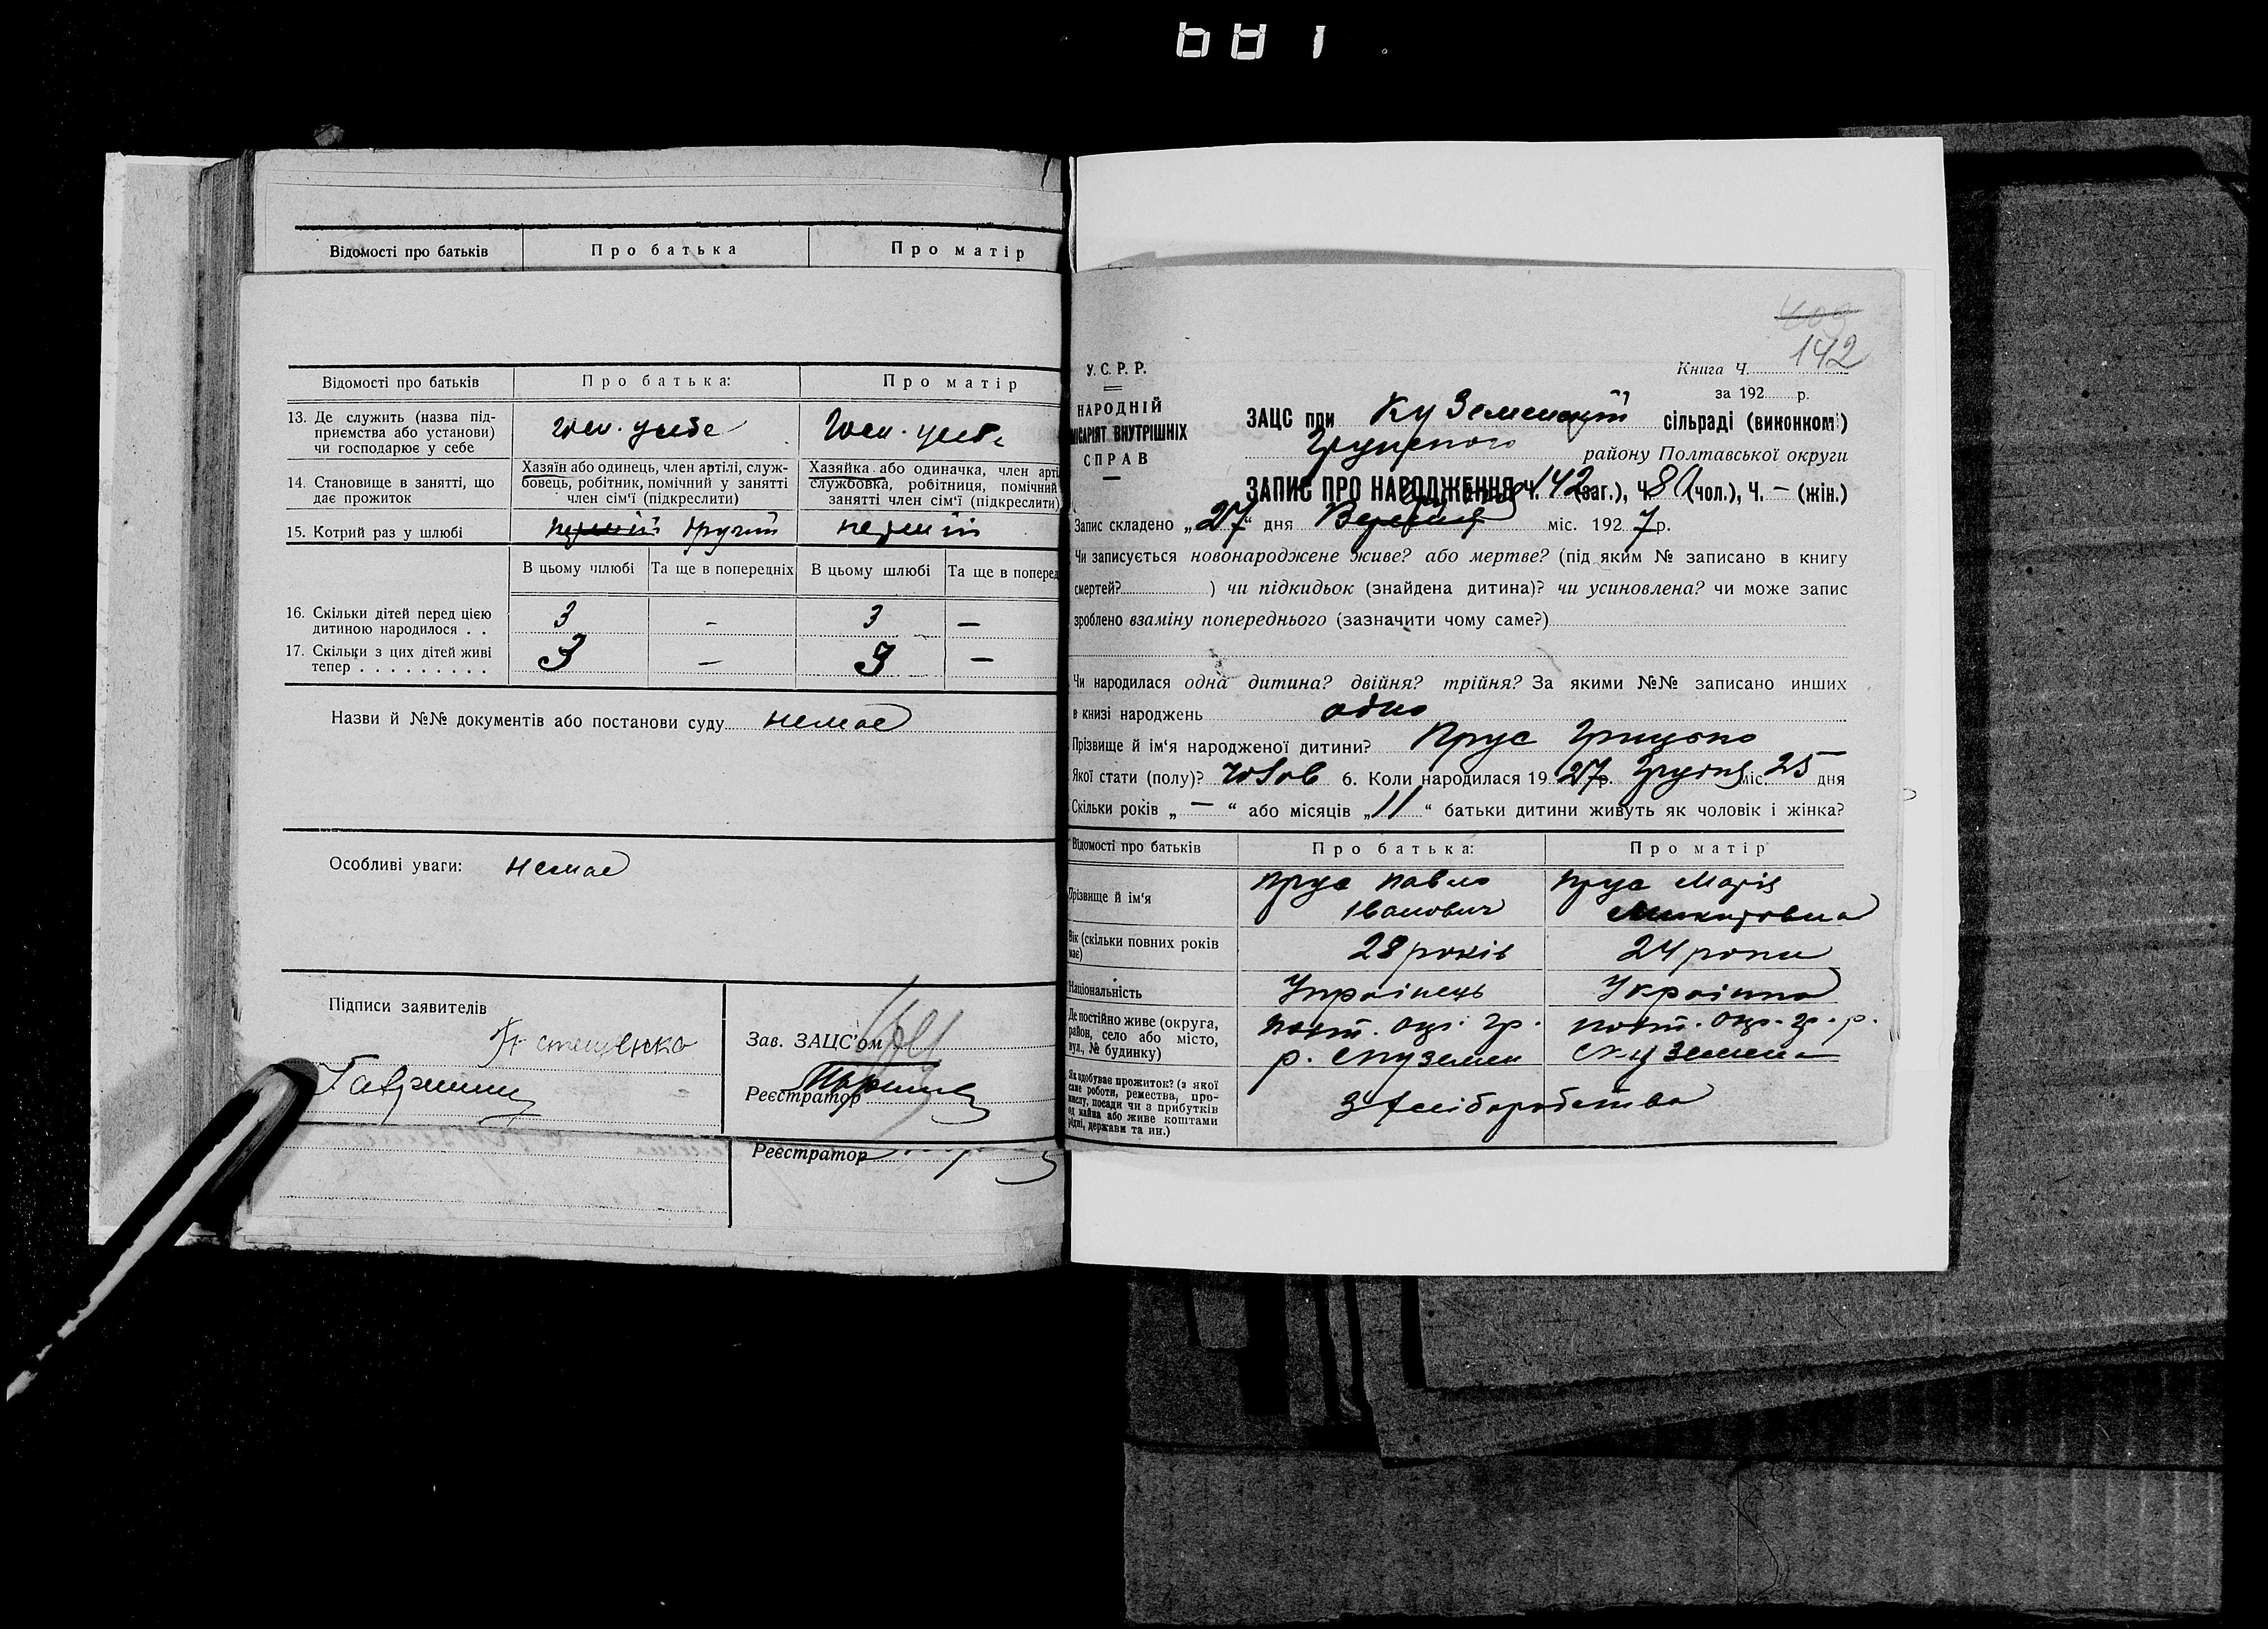 681
Відомості про батьків Про батька Про матір
Відомості про батьків Про батька: Про матір
13. Де служить (назва під-
приємства або установи)
чи господарює у себе
госп. у себе госп. у себе
14. Становище в занятті, що
дає прожиток
Хазяїн або одинець, член артілі, служ-
бовець, робітник, помічний у занятті
член сім'ї (підкреслити)
Хазяйка або одиначка, член арті
службовка, робітниця, помічний
занятті член сім'ї (підкреслити)
15. Котрий раз у шлюбі перший другий перший
В цьому шлюбі Та ще в попередніх В цьому шлюбі Та ще в поперед
16. Скільки дітей перед цією
дитиною народилося . . 3 - 3 —
17. Скільки з цих дітей живі
тепер . . . . . . . . . 3 — 3 —
Назви й №№ документів або постанови суду немає
Особливі уваги: немає
Підписи заявителів
Зав. ЗАЦС'ом
Реєстратор
Реєстратор
409
142
У. С. Р. Р.
Книга Ч.
за 192 р.
НАРОДНІЙ
МІСАРІЯТ ВНУТРІШНІХ
СПРАВ
ЗАЦС при Куземенській сільраді (виконкомі)
Грунського району Полтавської округи
ЗАПИС ПРО НАРОДЖЕННЯ Ч. 142 (заг.), Ч. 81 (чол.), Ч. — (жін.)
Запис складено „27" дня Вересня Грудня міс. 1927 р.
Чи записується новонароджене живе? або мертве? (під яким № записано в книгу
смертей? ) чи підкидьок (знайдена дитина)? чи усиновлена? чи може запис
зроблено взаміну попереднього (зазначити чому саме?)
Чи народилася одна дитина? двійня? трійня? За якими №№ записано инших
в книзі народжень одно
Прізвище й ім'я народженої дитини? Прус Грицько
Якої стати (полу)? чолов 6. Коли народилася 1927 р. Грудня міс. 25 дня
Скільки років „—" або місяців „11" батьки дитини живуть як чоловік і жінка?
Відомості про батьків Про батька: Про матір
Прізвище й ім'я
Прус Павло
Іванович
Прус Марія
Микитовна
Вік (скільки повних років
має)
28 років 24 роки
Національність Українець Українка
Де постійно живе (округа,
район, село або місто,
вул., № будинку)
Полт. окр. Гр.
р. с. Куземен
Полт. окр. Гр. р.
с. Куземен
Як здобуває прожиток? (з якої
саме роботи, ремества, про-
мислу, посади чи з прибутків
од майна або живе коштами
рідні, держави та ин.)
З хліборобства